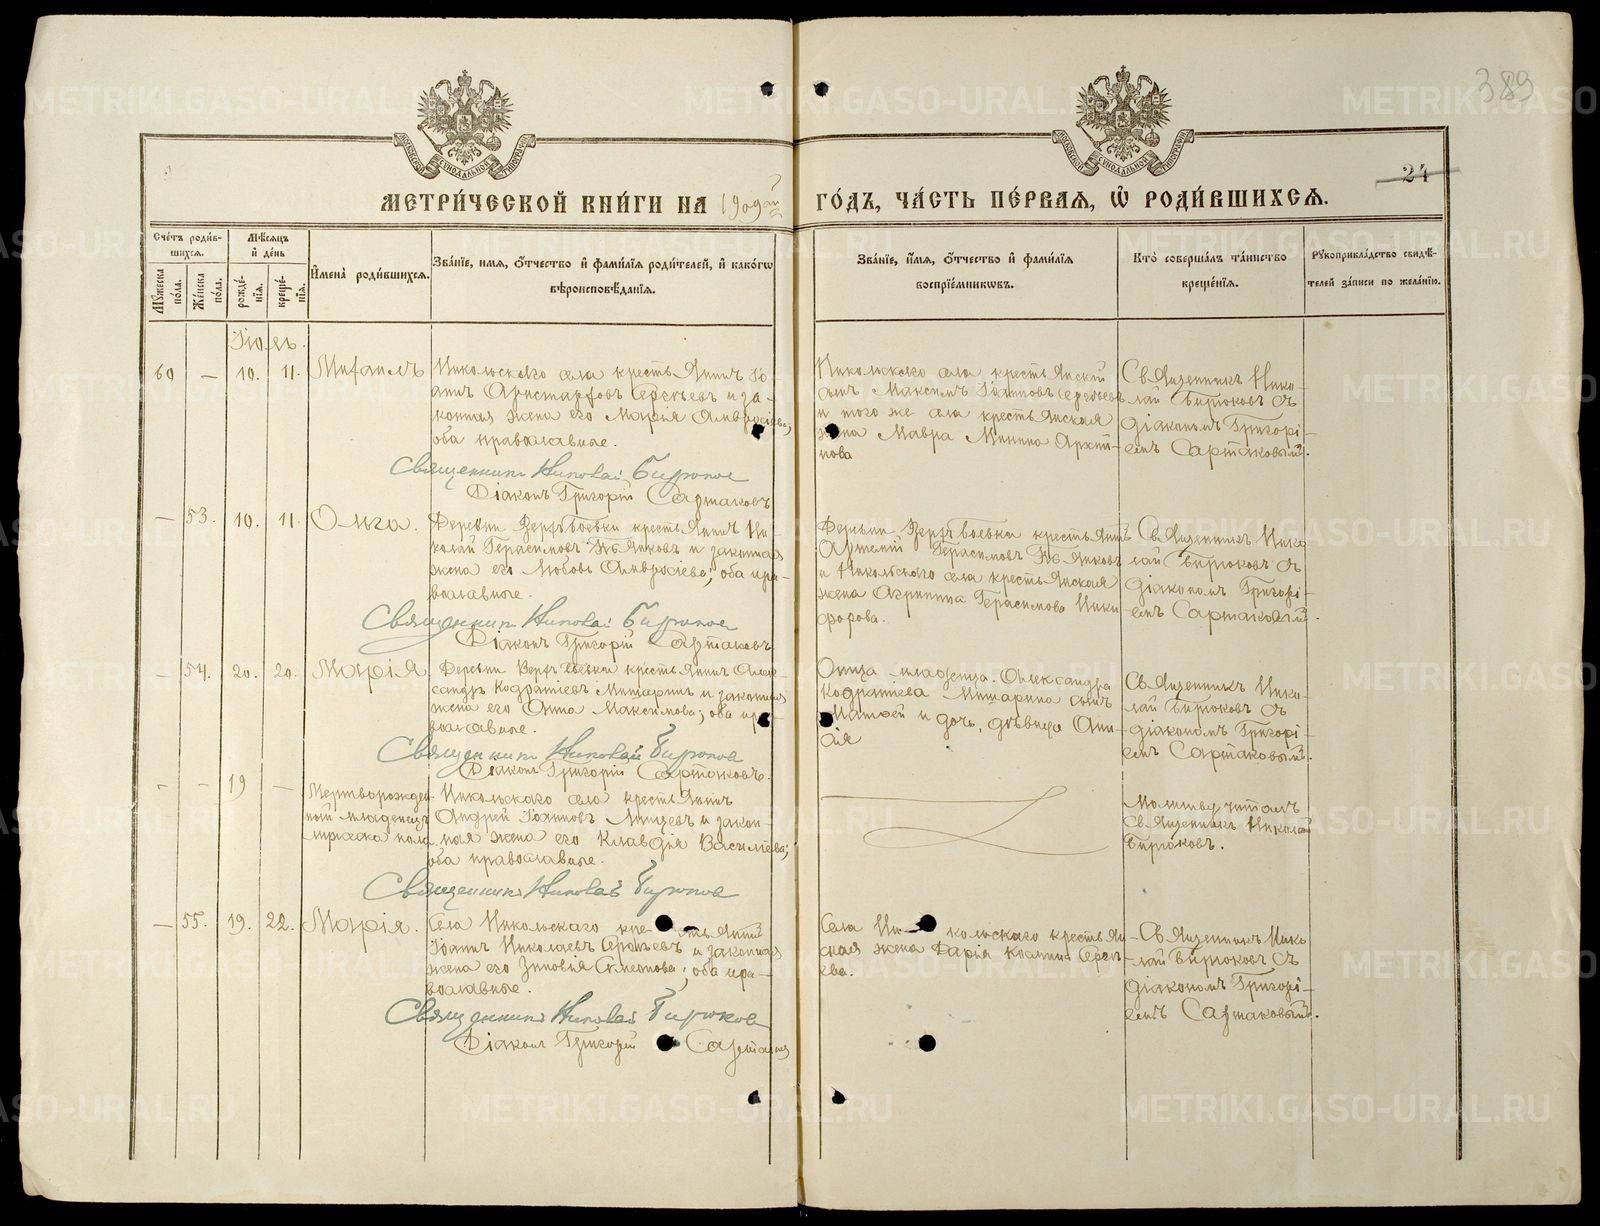 389
24
МЕТРИ́ЧЕСКОЙ КНИ́ГИ НА 1909й ГО́ДЪ, ЧА́СТЬ ПЕ́РВАЯ, Ѡ҆ РОДИ́ВШИХСѦ.
Сче́тъ роди́в-
шихсѧ.
Мѣ́сѧцъ
и҆ де́нь
Мꙋ́жеска по́ла.
Же́нска по́ла.
рожде́-
нїѧ.
креще́-
нїѧ.
И҆мена̀ роди́вшихсѧ.
Зва́нїе, и҆́мѧ, ѻ҆́тчество и҆ фами́лїѧ роди́телей, и҆ како́гѡ
вѣроисповѣ́данїѧ.
Зва́нїе, и҆́мѧ, ѻ҆́тчество и҆ фами́лїѧ
воспрїе́мникѡвъ.
Кто̀ соверша́лъ та́инство
креще́нїѧ.
Рꙋкоприкла́дство свидѣ́-
телей за́писи по жела́нїю.
Іюль.
60 — 10. 11. Михаилъ
Никольскаго села крестьянинъ Іо-
аннъ Аристарховъ Сергѣевъ и за-
конная жена его Марія Амвросіева;
оба православные.
Священникъ Николай Бирюковъ
Діаконъ Григорій Сартаковъ
Никольскаго села крестьянскій
сынъ Максимъ Іоанновъ Сергѣевъ
и того же села крестьянская
жена Мавра Минина
Священникъ Нико-
лай Бирюковъ съ
діакономъ Григорі-
емъ Сартаковымъ.
— 53. 10. 11. Ольга.
Деревни крестьянинъ Ни-
колай Герасимовъ и законная
жена его Любовь Амвросіева; оба пра-
вославные.
Священникъ Николай Бирюковъ
Діаконъ Григорій Сартаковъ
Деревни крестьянинъ
Артемій Герасимовъ
и Никольскаго села крестьянская
жена Агриппина Герасимова Ники-
форова.
Священникъ Нико-
лай Бирюковъ съ
діакономъ Григорі-
емъ Сартаковымъ.
— 54. 20. 20. Марія
Деревни крестьянинъ Алек-
сандръ Кодратіевъ Мишаринъ и законная
жена его Анна Максимова; оба пра-
вославные.
Священникъ Николай Бирюковъ
Діаконъ Григорій Сартаковъ.
Отца младенца Александра
Кодратіева Мишарина сынъ
Матѳей и дочь, дѣвица Анн-
Священникъ Нико-
лай Бирюковъ съ
діакономъ Григорі-
емъ Сартаковымъ.
- - 19 — Мертворожден-
ный младенецъ
мужска пола
Никольскаго села крестьянинъ
Андрей Іоанновъ и закон-
ная жена его Клавдія Василіева;
оба православные.
Священникъ Николай Бирюковъ
Молитву читалъ
Священникъ Николай
Бирюковъ.
— 55. 19. 22. Марія.
Села Никольскаго крестьянинъ
Іоаннъ Николаевъ Сергѣевъ и законная
жена его Зиновія Симеонова; оба пра-
вославные.
Священникъ Николай Бирюковъ
Діаконъ Григорій Сартаковъ
Села Никольскаго крестьян-
ская жена Дарія Космина Сергѣ-
ева.
Священникъ Нико-
лай Бирюковъ съ
діакономъ Григорі-
емъ Сартаковымъ.
METRIKI.GASO-URAL.RU